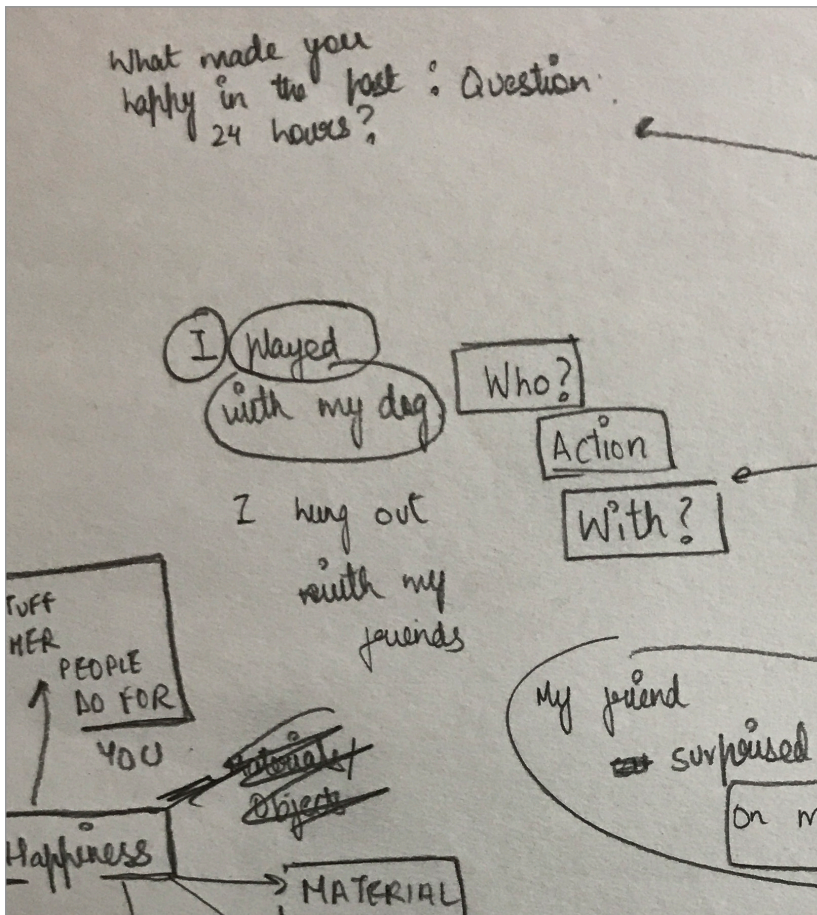 What made you
happy in the past : Question
24 hours?
I played
with my dog
Who?
Action
With?
I hung out
with my
friends
TUFF
HER
PEOPLE
DO FOR
YOU
Materials/
Objects
Happiness
MATERIAL
My friend
surprised
On m